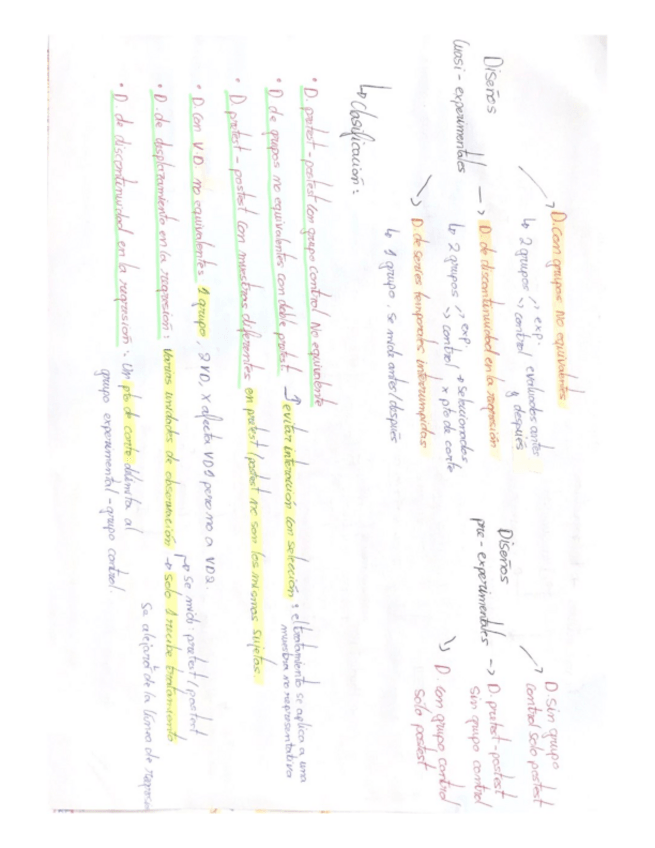 Diseños
Cuasi-experimentales
→ D. con grupos No equivalentes
↳ 2 grupos → exp.
→ control
evaluados antes
y después
→ D. de discontinuidad en la regresión
↳ 2 grupos → exp.
→ control
→ seleccionados
x pto de corte
→ D. de series temporales interrumpidas
↳ 1 grupo. Se mide antes/después
Diseños
pre-experimentales
→ D. sin grupo
control solo postest
→ D. pretest-postest
sin grupo control
→ D. con grupo control
solo postest
↳ Clasificación:
• D. pretest-postest con grupo control No equivalente
• D. de grupos no equivalentes con doble pretest. evitar interacción con selección: el tratamiento se aplica a una
muestra no representativa
• D. pretest-postest con muestras diferentes en pretest/postest no son los mismos sujetos.
• D. con V.D. no equivalentes. 1 grupo 2 VD, X afecta VD1 pero no a VD2.
↳ se mide pretest/postest
• D. de desplazamiento en la regresión: Varias unidades de observación → solo 1 recibe tratamiento
Se alejará de la línea de regresión
• D. de discontinuidad en la regresión: Un pto de corte delimita al
grupo experimental-grupo control.